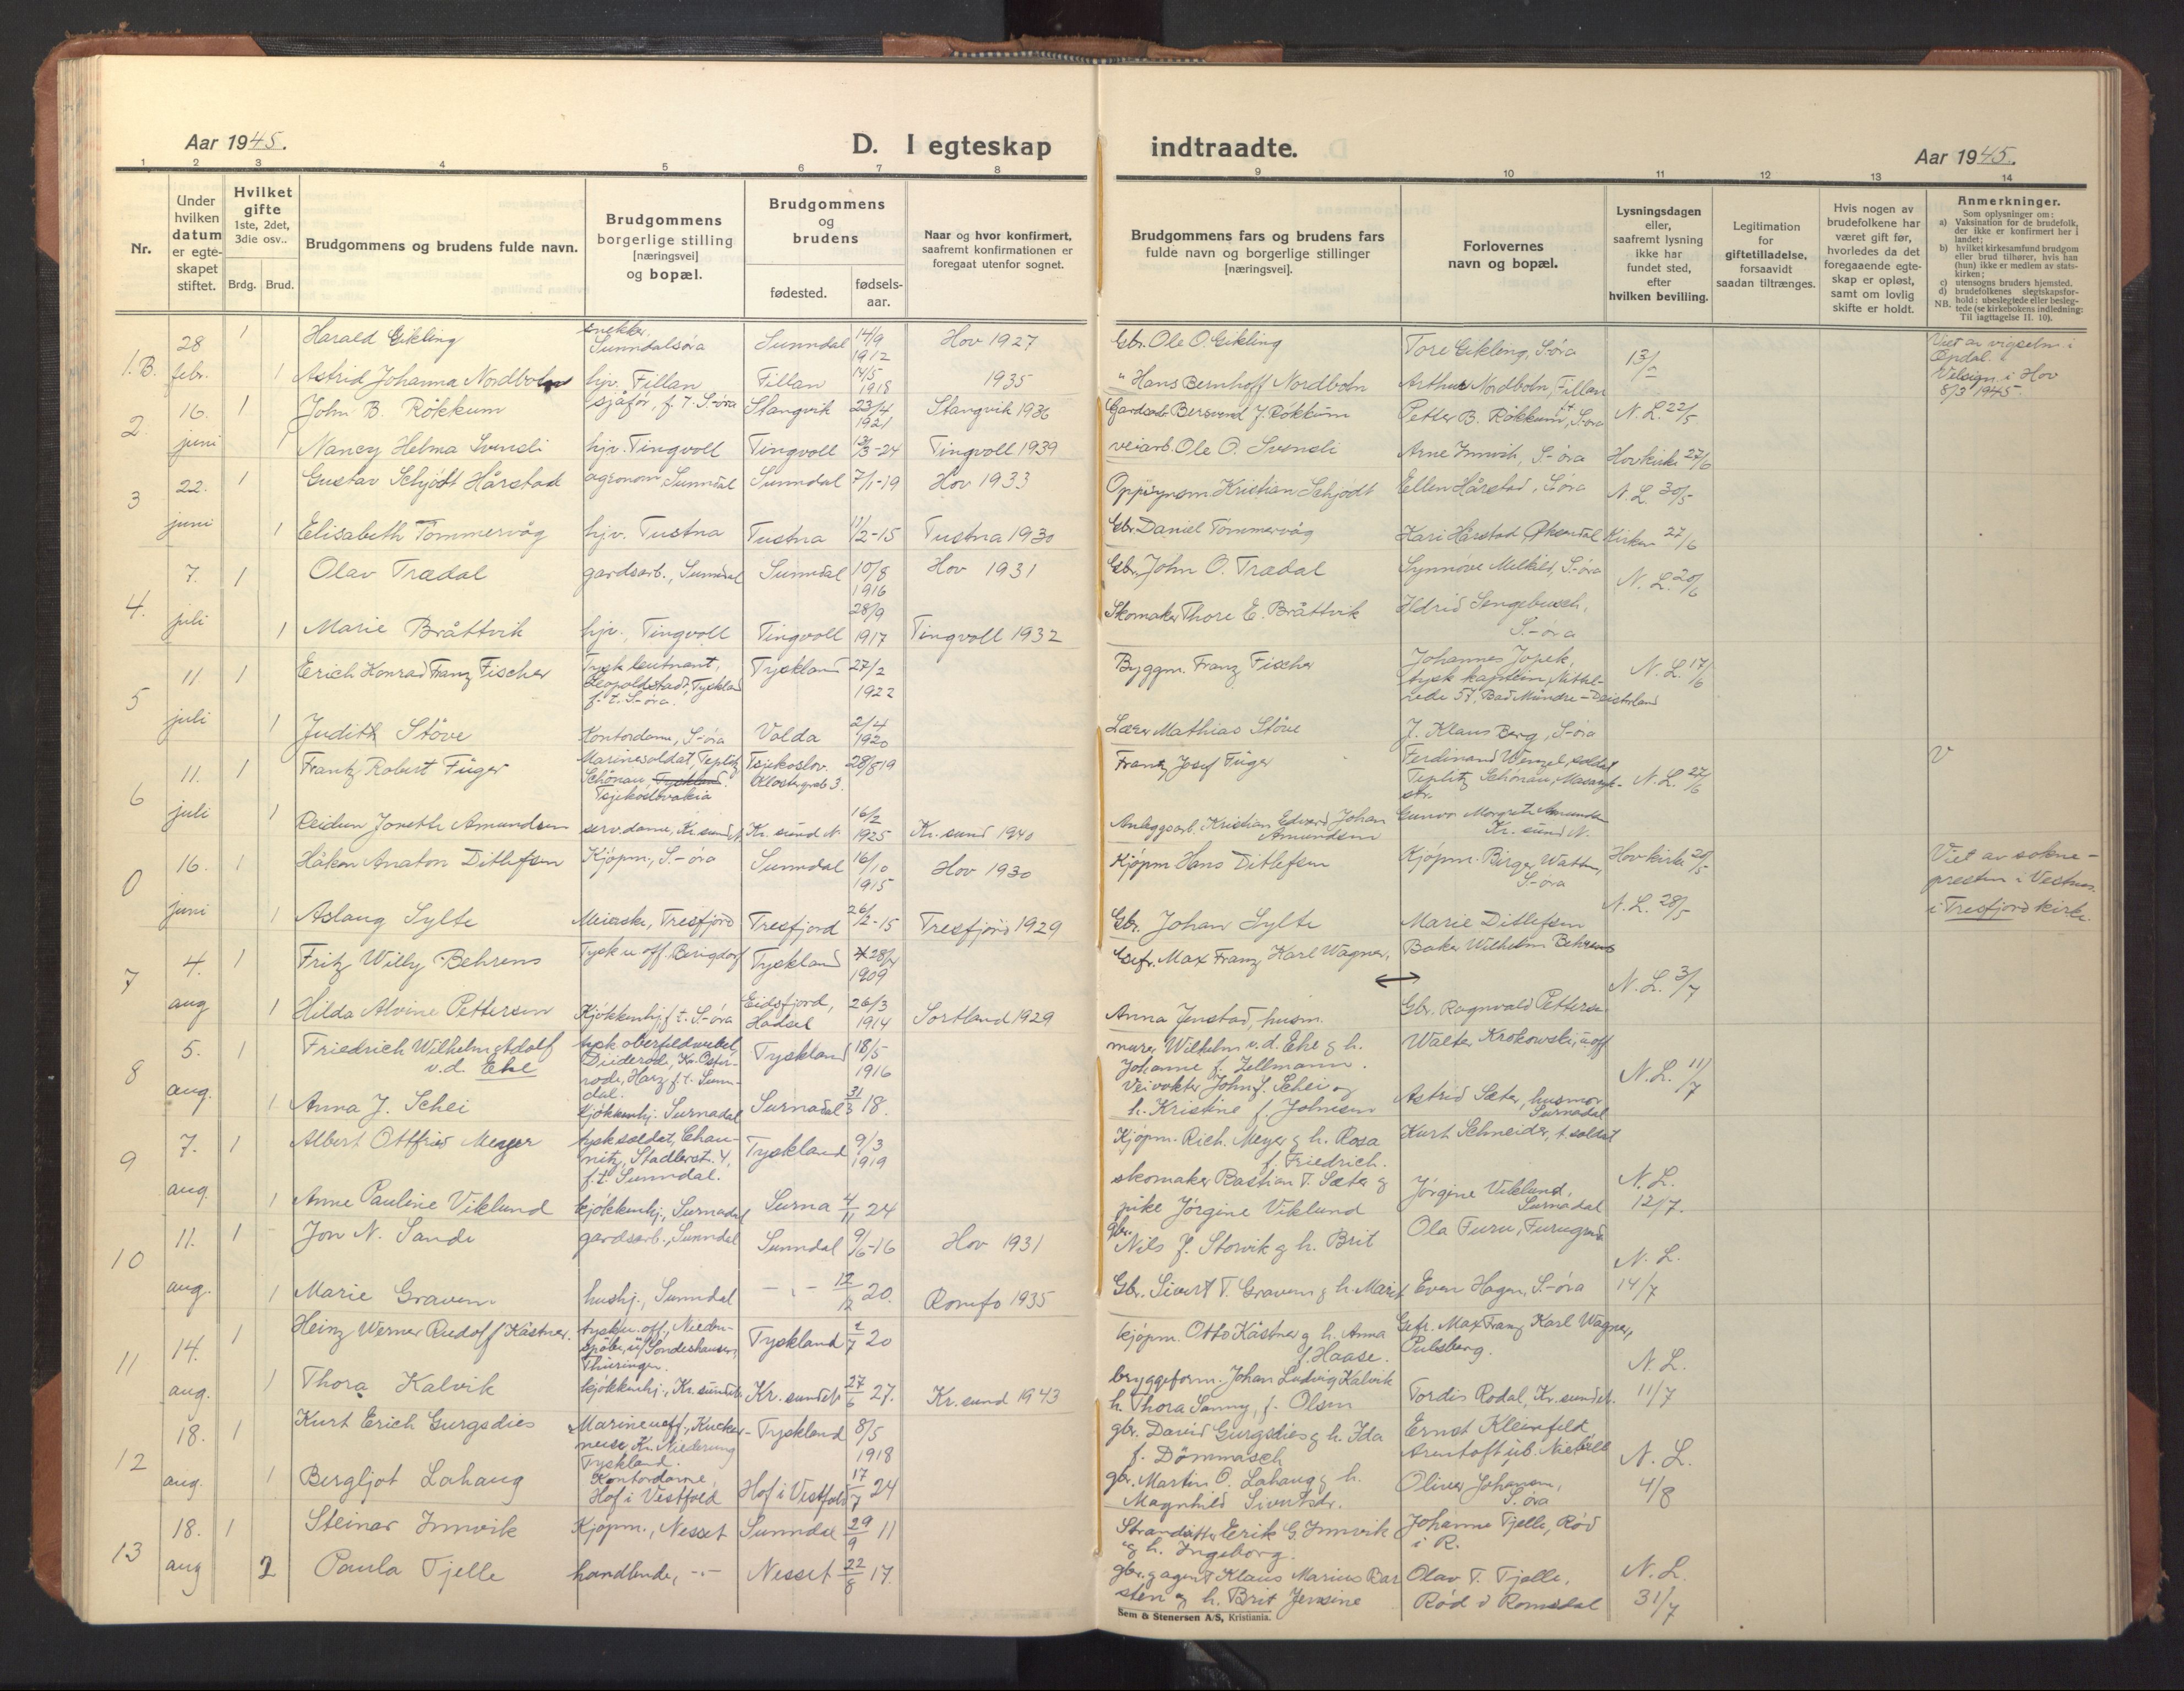 Aar 1945.
D. I egteskap indtraadte.
Aar 1945.
1 2 3 4 5 6 7 8 9 10 11 12 13 14
Nr.
Under
hvilken
datum
er egte-
skapet
stiftet.
Hvilket
gifte
1ste, 2det,
3die osv..
Brdg. Brud.
Brudgommens og brudens fulde navn.
Brudgommens
borgerlige stilling
[næringsvei]
og bopæl.
Brudgommens
og
brudens
fødested.
fødsels-
aar.
Naar og hvor konfirmert,
saafremt konfirmationen er
foregaat utenfor sognet.
Brudgommens fars og brudens fars
fulde navn og borgerlige stillinger
[næringsvei].
Forlovernes
navn og bopæl.
Lysningsdagen
eller,
saafremt lysning
ikke har
fundet sted,
efter
hvilken bevilling.
Legitimation
for
giftetilladelse,
forsaavidt
saadan tiltrænges.
Hvis nogen av
brudefolkene har
været gift før,
hvorledes da det
foregaaende egte-
skap er opløst,
samt om lovlig
skifte er holdt.
Anmerkninger.
Som oplysninger om:
a) Vaksination for de brudefolk,
der ikke er konfirmert her i
landet;
b) hvilket kirkesamfund brudgom
eller brud tilhører, hvis han
(hun) ikke er medlem av stats-
kirken;
c) utensogns bruders hjemsted.
d) brudefolkenes slegtskapsfor-
hold: ubeslegtede eller besleg-
NB. tede (se kirkebokens indledning:
Til iagttagelse II. 10).
1.B.
28 febr.
1 Harald Gikling
snekker, Sunndalsøra
Sunndal 14/9 1912
Hov 1927
Gbr. Ole O. Gikling
Tore Gikling, S-øra
13/2
Viet av vigselm. i
Opdal.
Velsign. i Hov
8/3 1945.
1 Astrid Johanna Nordbotn
hjv. Fillan
Fillan 14/5 1918
1935
" Hans Bernhoff Nordbotn
Arthur Nordbotn, Fillan
2.
16. juni
1 John B. Røkkum
sjåfør, f.t. S-øra
Stangvik 23/4 1921
Stangvik 1936
Gardsarb. Bersvend J. Røkkum
Petter B. Røkkum, S-øra
N.L. 22/5
1 Nancy Helma Svendli
hjv. Tingvoll
Tingvoll 13/3-24
Tingvoll 1939
veiarb. Ole O. Svendli
Arne Innvik, S-øra
Hov kirke 27/6
3
22. juni
1 Gustav Schjödt Hårstad
agronom Sunndal
Sunndal 7/1-19
Hov 1933
Oppsynsm. Kristian Schjödt
Ellen Hårstad, S-øra
N.L. 30/5
1 Elisabeth Tømmervåg
hjv. Tustna
Tustna 11/2-15
Tustna 1930
Gbr. Daniel Tømmervåg
Kari Hårstad, Øksendal
Kirken 27/6
4.
7. juli
1 Olav Trædal
gardsarb., Sunndal
Sunndal 10/8 1916
Hov 1931
Gbr. John O. Trædal
Synnøve Melkild, S-øra
N.L. 20/6
1 Marie Bråttvik
hjv., Tingvoll
Tingvoll 28/9 1917
Tingvoll 1932
Skomaker Thore E. Bråttvik
Ildrid Sengebusch,
S.-øra
5
11. juli
1 Erich Konrad Franz Fischer
Tysk leutnant,
Leopoldstadt, Tyskland
f.t. S-øra.
Tyskland 27/2 1922
Byggm. Franz Fischer
Johannes Jopek,
tysk kaptein, Nettel-
rede 57, Bad Münder-Deisterland
N.L. 17/6
1 Judith Støve
Kontordame, S-øra
Volda 2/4 1920
Lærer Mathias Støve
J. Klaus Berg, S-øra
6
11. juli
1 Frantz Robert Füger
Marinesoldat, Teplitz
Schönau, Tyskland.
Tsjekoslovakia
Tsjekoslov.
Klostergrab 3.
28/8-19
Frantz Josef Füger
Ferdinand Wenzel, soldat
Teplitz Schönau, Masaryk-
str.
N.L. 27/6
V
1 Reidun Joneth Amundsen
serv.dame, Kr.sund N.
Kr. sund N. 16/2 1925
Kr. sund 1940
Anleggsarb. Kristian Edvard Johan
Amundsen
Gunvor Margrete Amundsen
Kr. sund N.
0
16. juni
1 Håkon Anaton Ditlefsen
Kjøpm., S.-øra
Sunndal 16/10 1915
Hov 1930
Kjøpm Hans Ditlefsen
Kjøpm. Birger Watten,
S-øra
Hov kirke 20/5
Viet av sokne-
presten i Vestnes
i Tresfjord kirke.
1 Aslaug Sylte
Meierske, Tresfjord
Tresfjord 26/12-15
Tresfjord 1929
Gbr. Johan Sylte
Marie Ditlefsen
N.L. 28/5
7
4. aug
1 Fritz Willy Behrens
Tysk u.off.
Tyskland 28/4 1909
Gefr. Max Franz Karl Wagner,
Baker Wilhelm Behrens
N.L. 3/7
1 Hilda Alvine Pettersen
Kjøkkenhj. f.t. S-øra
Eidsfjord,
Hadsel
26/3 1914
Sortland 1929
Anna Jenstad, husm.
Gbr. Ragnvald Pettersen
8
5. aug.
1 Friedrich Wilhelm Adolf
v.d. Ehe
tysk oberfeldwebel,
Düderode, Kr. Oste-
rode, Harz f.t. Sunn-
dal.
Tyskland 18/5 1916
murer Wilhelm v.d. Ehe g h.
Johanne f. Zellmann.
Walter Krokowski, u.off
N.L. 11/7
1 Anna J. Schei
kjøkkenhj. Surnadal
Surnadal 31/3 18.
Veivokter John J. Schei og
h. Kristine f. Johnsen
Astrid Sæter, husmor
Surnadal
9
7. aug.
1 Albert Ottfried Meyer
tysk soldat,
Stadlerst. 4,
f.t. Sunndal.
Tyskland 9/3 1919
Kjøpm. Rich. Meyer g h. Rosa
f. Friedrich.
Kurt Schneider, t. soldat
1 Anne Pauline Viklund
kjøkkenhj., Surnadal
Surna 4/11 24
skomaker Bastian T. Sæter g
pike Jørgine Viklund
Jørgine Viklund,
Surnadal
N.L.
12/7.
10
11. aug.
1 Jon N. Sande
gardsarb., Sunndal
Sunndal 9/6-16
Hov 1931
gbr.
Nils J. Storvik g h. Brit
Ola Furu, Furugrend
N.L.
14/7
1 Marie Gravem
hushj., Sunndal
-"- 12/12 20.
Romfo 1935
Gbr. Sivert T. Gravem g h. Marit
Even Hagen, S-øra
11
14. aug.
1 Heinz Werner Rudolf Kästner.
tysk u.off., Nieder-
spier, ü/Sondershausen,
Thüringen.
Tyskland 1/7 20
kjøpm. Otto Kästner g h. Anna
f. Haase.
Gefr. Max Franz Karl Wagner,
Pulsberg.
N.L.
11/7
1 Thora Kalvik
kjøkkenhj., Kr.sund N.
Kr. sund N 27/6 27.
Kr. sund 1943
bryggeform. Johan Ludvig Kalvik
h. Thora Sanny, f. Olsen
Tordis Rodal, Kr.sund N.
12
18. aug.
1 Kurt Erich Gurgsdies
Marineuoff., Kucker-
neise, Kr. Niederung
Tyskland.
Tyskland 8/5 1918
gbr. David Gurgsdies g h. Ida
f. Dömmasch
Ernst Kleinfeld
Arentoft üb. Niebüll
N.L.
4/8
1 Bergljot Lahaug
Kontordame,
Hof i Vestfold
Hof i Vestfold 17/7 24
gbr. Martin O. Lahaug g h.
Magnhild Sivertsdr.
Oliver Johansen,
S. øra
13
18. aug
1 Steinar Innvik
Kjøpm., Nesset
Sunndal 29/9 11
Strandsitter Erik G. Innvik
g h. Ingeborg.
Johanne Tjelle, Rød
i R.
N.L.
31/7
2 Paula Tjelle
handlende, -"-
Nesset 22/8 17.
gbr. g agent Klaus Marius Bar
sten g h. Brit Jensine
Olav T. Tjelle,
Rød i Romsdal
Sem & Stenersen A/S, Kristiania.